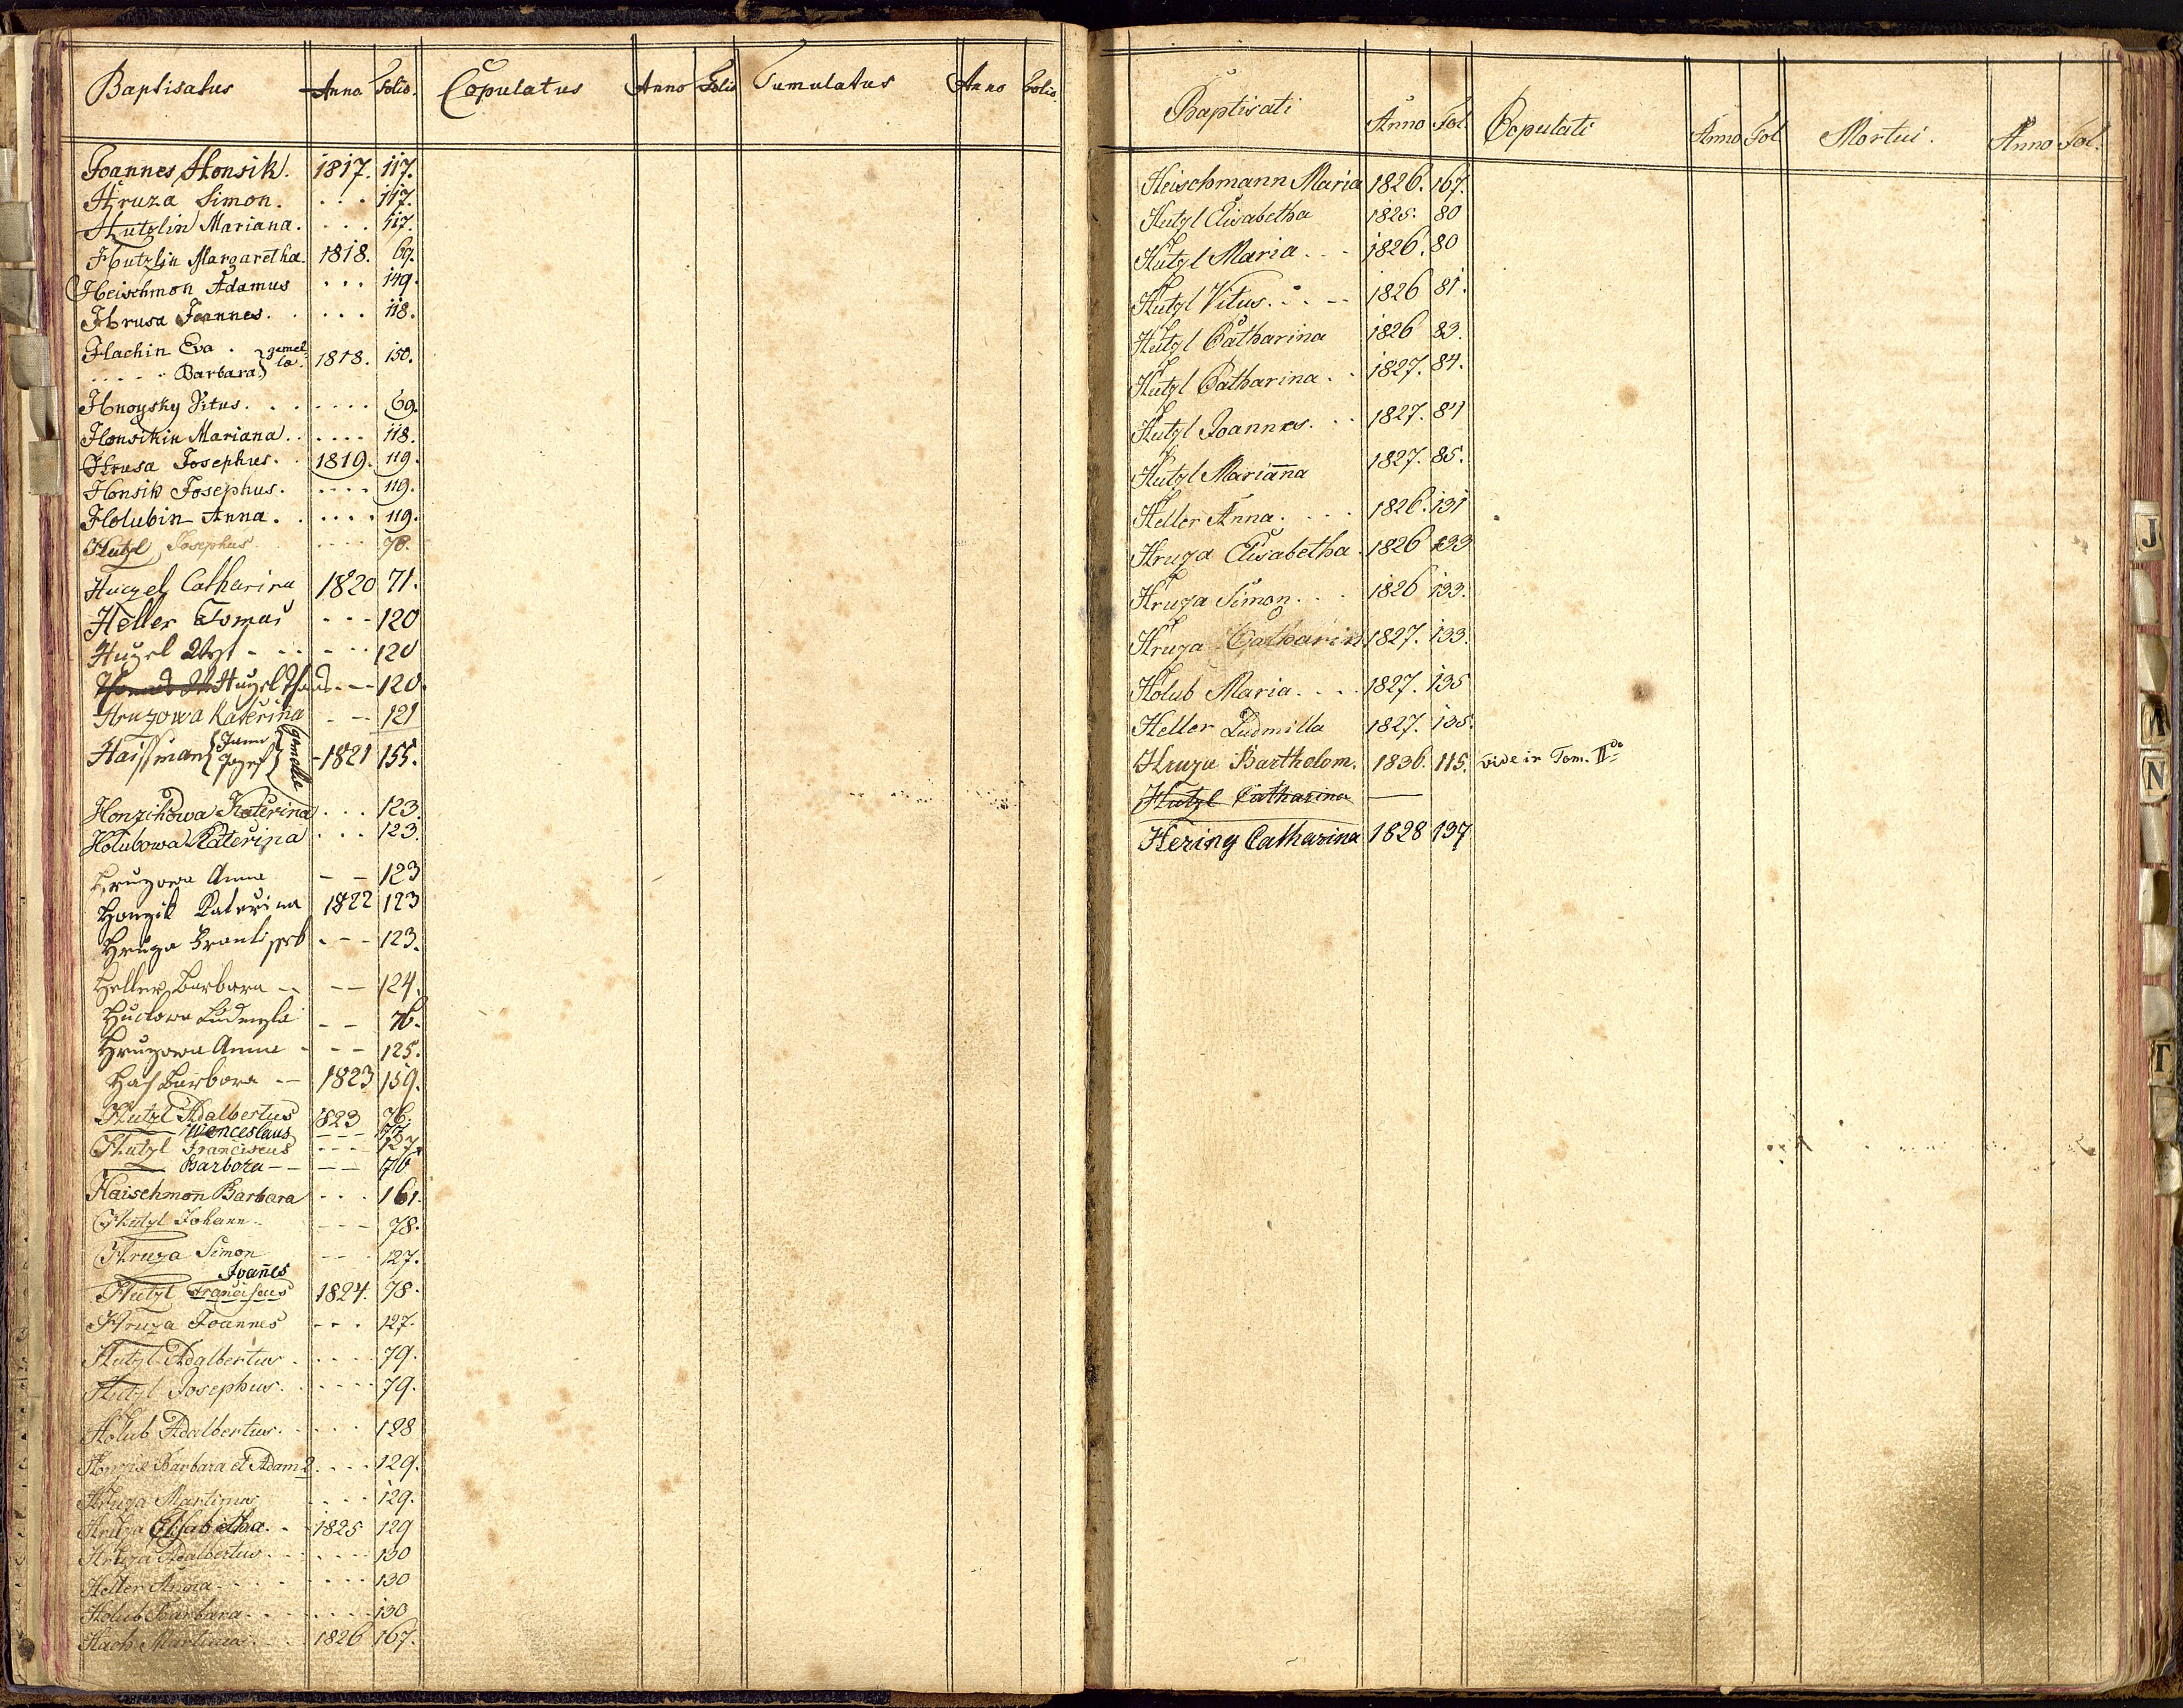 Baptisatus Anno Folio. Copulatus Anno Folio Tumulatus Anno Folio.
Joannes Honsik. 1817. 117.
Hruza Simon. . . . 117.
Hutzlin Mariana. . . . 117.
Hutzlin Margaretha. 1818. 69.
Heischmon Adamus . . . 149.
Hrusa Joannes. . . . . 118.
Hachin Eva . gemel-
. . . . . Barbara la. 1818. 150.
Hnoysky Vitus. . . . . . . 69.
Honsikin Mariana. . . . . . 118.
Hrusa Josephus. . 1819. 119.
Honsik Josephus. . . . . 119.
Holubin Anna. . . . . . 119.
Hutzl Josephus. . . . . 70.
Huczel Catharina 1820 71.
Heller Tomas - - - 120
Huzel - - - - - 120
Huzel - - 120.
Hruzowa Kateřina - - 121
Haissman Jann Jozef gemelli - 1821 155.
Honzikowa Kateřina . . . 123.
Holubowa Kateřina . . . 123.
Hruzowa Anna - - 123
Honzik Kateřina 1822 123
Hruza Frantissek - - - 123.
Heller Barbora - - - - 124.
Huclowa Ludmyla - - 76.
Hruzowa Anna - - - 125.
Has Barbora - - 1823 159.
Hutzl Adalbertus 1823 76.
Wenceslaus - - - 77.
Hutzl Franciscus - - - 127.
Barbora - - - - 76
Haischmon̄ Barbara . . . 161.
Hutzl Johann. - - - 78.
Hruza Simon - - - 127.
Joan̄es
Hutzl Franciscus 1824. 78.
Hruza Joannes - - - 127.
Hutzl Adalbertus. . . . . 79.
Hutzl Josephus. . . . . 79.
Holub Adalbertus. . . . . 128
Honzik Barbara et Adam 2. . . . 129.
Hruza Martinus . . . . 129.
Hruza Elisabetha. . - 1825 129
Hruza Adalbertus . . . . . 130
Heller Anna . . . . . . 130
Holub Barbara . . . . . . 130
Hach Martinus . . . 1826 167.
Baptisati Anno Fol. Copulati Anno Fol Mortui. Anno Fol.
Heischmann Maria 1826. 167.
Hutzl Elisabetha 1825. 80
Hutzl Maria . . . 1826. 80
Hutzl Vitus. . . - - 1826 81.
Hutzl Catharina 1826 83.
Hutzl Catharina . . 1827. 84.
Hutzl Joannes. . . 1827. 84
Hutzl Marian̄a 1827. 85.
Heller Anna. . . . 1826. 131
Hruza Elisabetha. 1826 133
Hruza Simon. . . 1826 133.
Hruza Catharin 1827. 133.
Holub Maria. . . . 1827. 135
Heller Ludmilla 1827. 135.
Hruza Bartholom. 1836. 115. vide in Tom. IIdo
Hutzl Catharina
Hering Catharina 1828 137
J
N
T